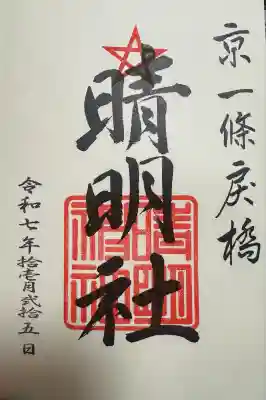 京一條戻橋
晴明社
晴明神社
令和七年拾壱月弐拾五日